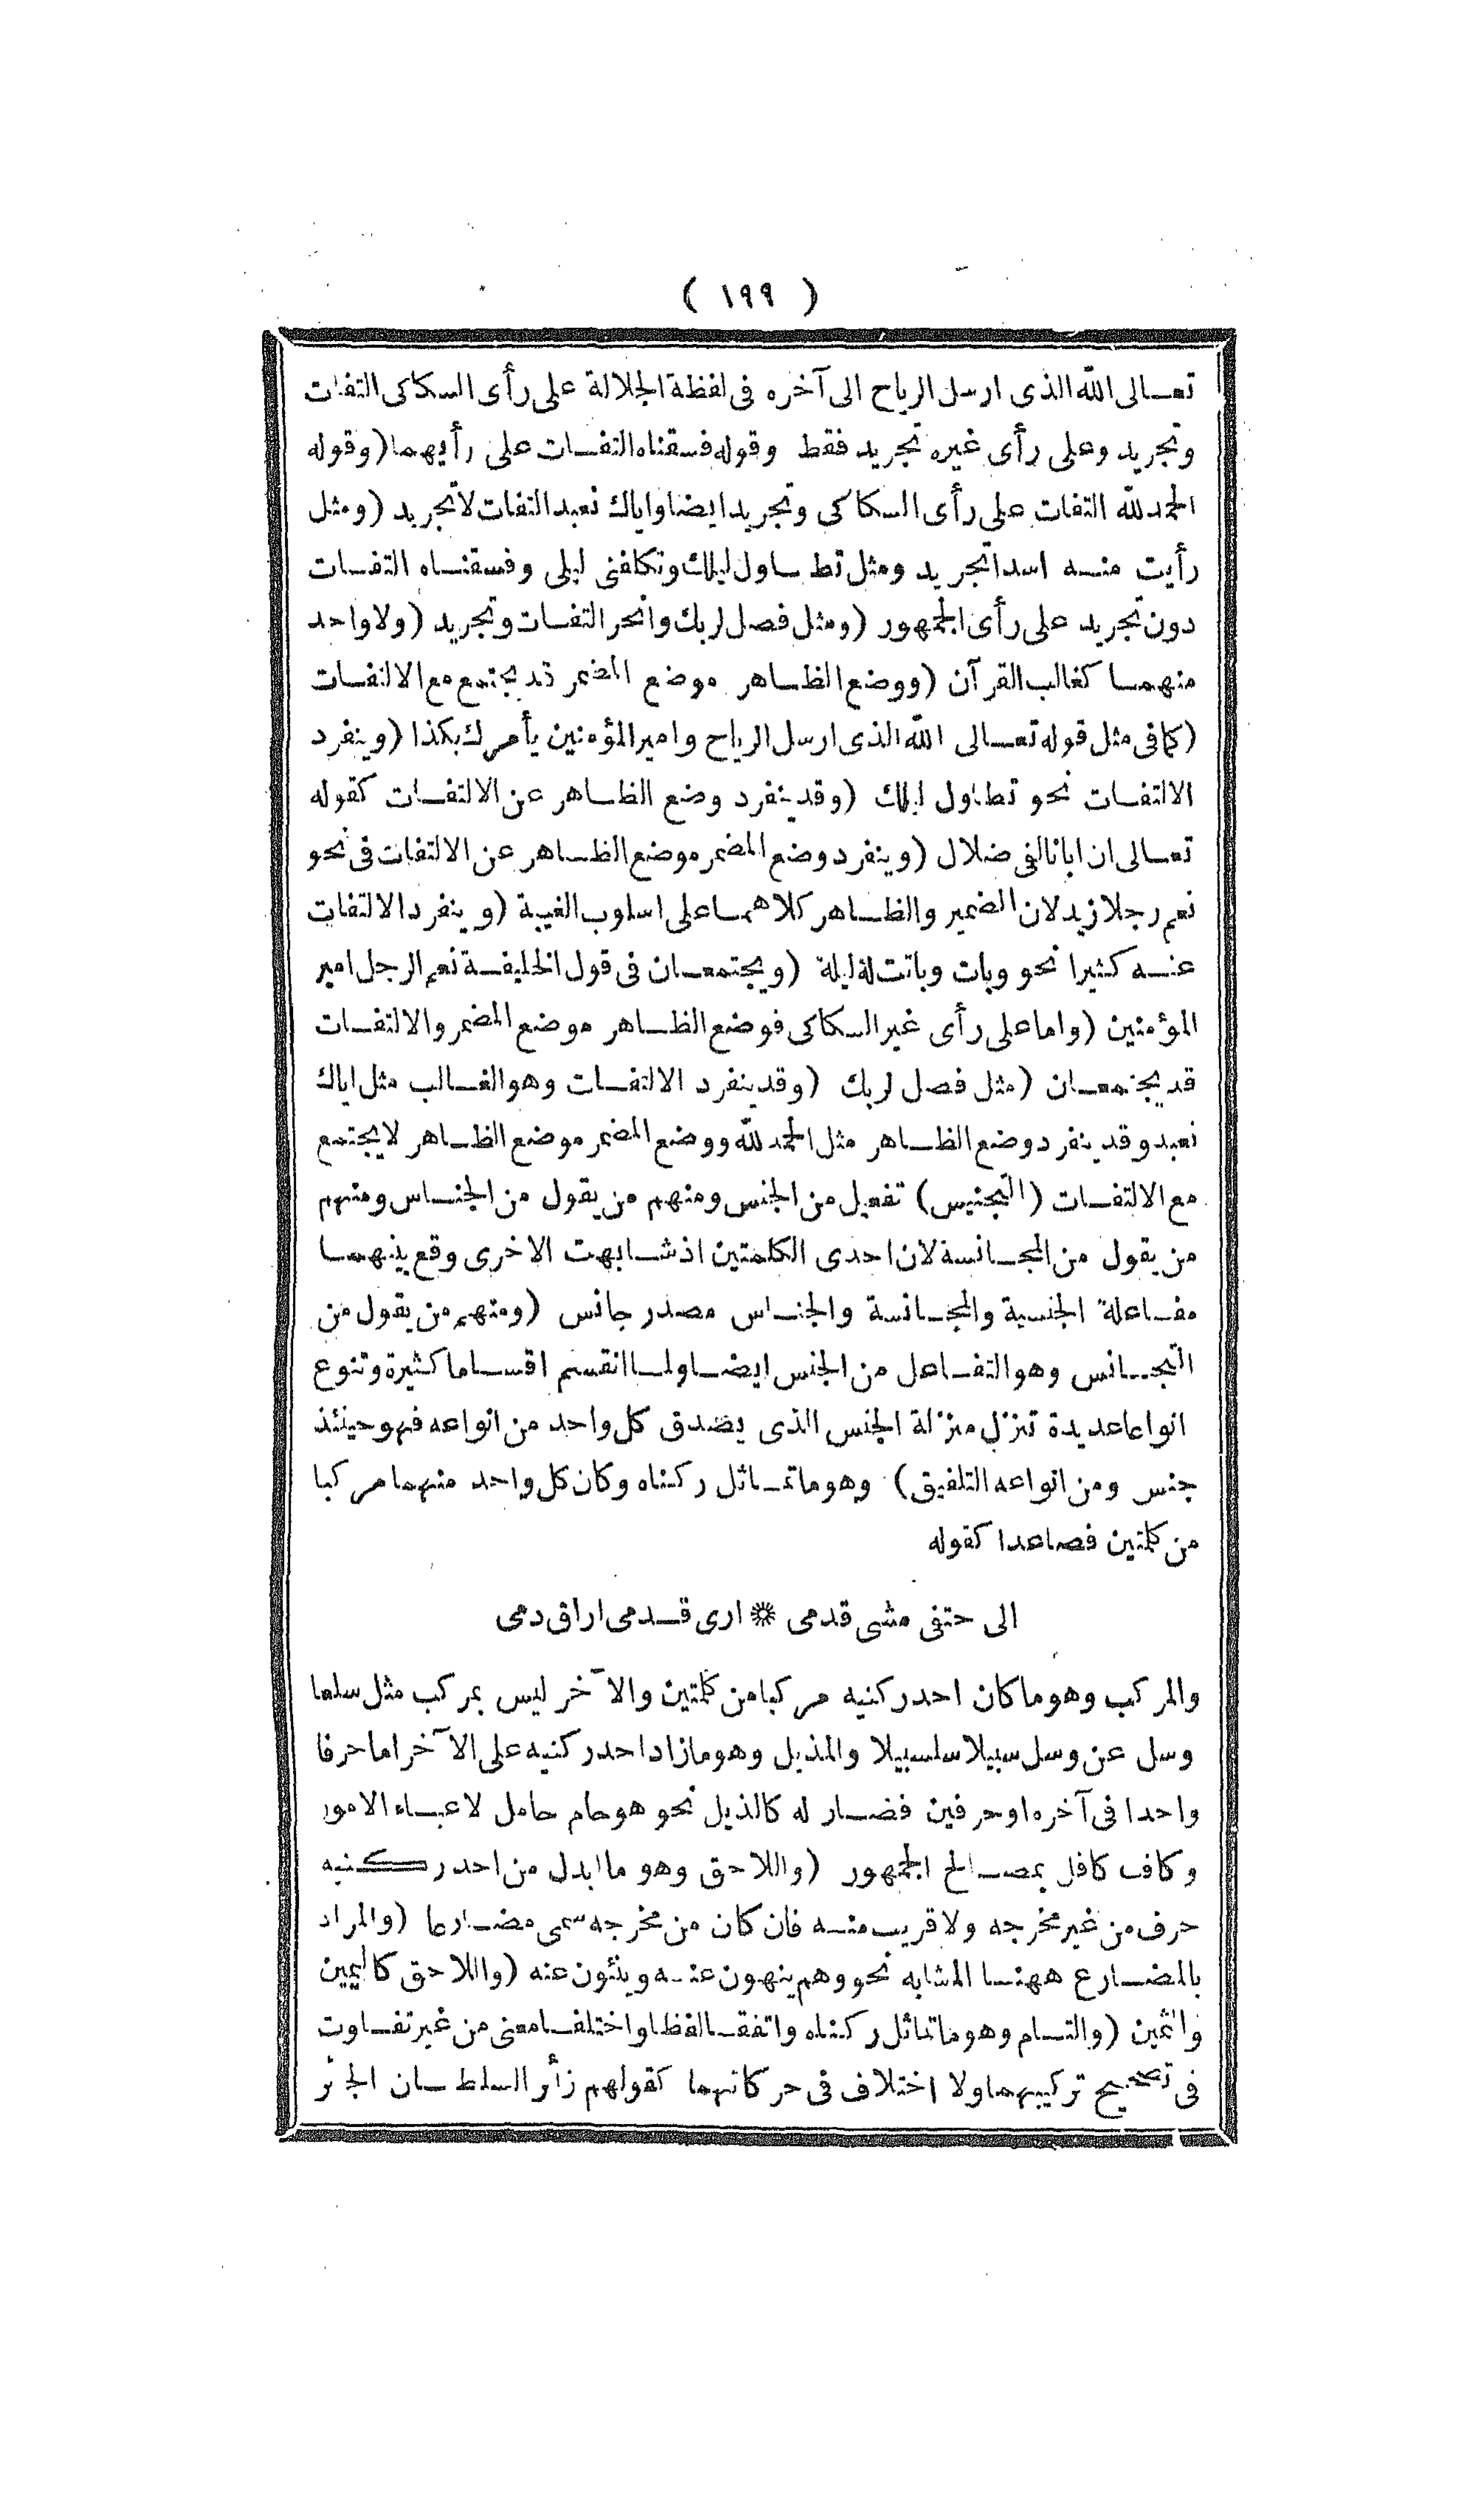 ( ١٩٩ )
تعالى الله الذى ارسل الرياح الى آخره فى لفظة الجلالة على رأى السكاكى التفات
وتجريد وعلى رأى غيره تجريد فقط وقوله فسقناه التفات على رأيهما (وقوله
الحمد لله التفات على رأى السكاكى وتجريد ايضا واياك نعبد التفات لا تجريد (ومثل
رأيت منه اسدا تجريد ومثل تطاول ليلك وتكلفنى ليلى وفسقناه التفات
دون تجريد على رأى الجمهور (ومثل فصل لربك وانحر التفات وتجريد (ولا واحد
منهما كغالب القرآن (ووضع الظاهر موضع المضمر قد يجتمع مع الالتفات
(كما فى مثل قوله تعالى الله الذى ارسل الرياح وامير المؤمنين يأمرك بكذا (وينفرد
الالتفات نحو تطاول ليلك (وقد ينفرد وضع الظاهر عن الالتفات كقوله
تعالى ان ابانا لفى ضلال (وينفرد وضع المضمر موضع الظاهر عن الالتفات فى نحو
نعم رجلا زيد لان الضمير والظاهر كلاهما على اسلوب الغيبة (وينفرد الالتفات
عنه كثيرا نحو وبات وباتت له ليلة (ويجتمعان فى قول الخليفة نعم الرجل امير
المؤمنين (واما على رأى غير السكاكى فوضع الظاهر موضع المضمر والالتفات
قد يجتمعان (مثل فصل لربك (وقد ينفرد الالتفات وهو الغالب مثل اياك
نعبد وقد ينفرد وضع الظاهر مثل الحمد لله ووضع المضمر موضع الظاهر لا يجتمع
مع الالتفات (التجنيس) تفعيل من الجنس ومنهم من يقول من الجناس ومنهم
من يقول من المجانسة لان احدى الكلمتين اذ شابهت الاخرى وقع بينهما
مفاعلة الجنسية والمجانسة والجناس مصدر جانس (ومنهم من يقول من
التجانس وهو التفاعل من الجنس ايضا ولما انقسم اقساما كثيرة وتنوع
انواعا عديدة تنزل منزلة الجنس الذى يصدق كل واحد من انواعه فهو حينئذ
جنس ومن انواعه التلفيق) وهو ما تماثل ركناه وكان كل واحد منهما مركبا
من كلمتين فصاعدا كقوله
الى حتفى مشى قدمى ❋ ارى قدمى اراق دمى
والمركب وهو ما كان احد ركنيه مركبا من كلمتين والآخر ليس بمركب مثل سلعا
وسل عن وسل سبيلا سلسبيلا والمذيل وهو ما زاد احد ركنيه على الآخر اما حرفا
واحدا فى آخره او حرفين فصار له كالذيل نحو هو حام حامل لاعباء الامور
وكاف كافل بمصالح الجمهور (واللاحق وهو ما ابدل من احد ركنيه
حرف من غير مخرجه ولا قريب منه فان كان من مخرجه سمى مضارعا (والمراد
بالمضارع ههنا المشابه نحو وهم ينهون عنه وينئون عنه (واللاحق كاليمين
والثمين (والتام وهو ما تماثل ركناه واتفقا لفظا واختلفا معنى من غير تفاوت
فى تصحيح تركيبهما ولا اختلاف فى حركاتهما كقولهم زأر السلطان الجائر